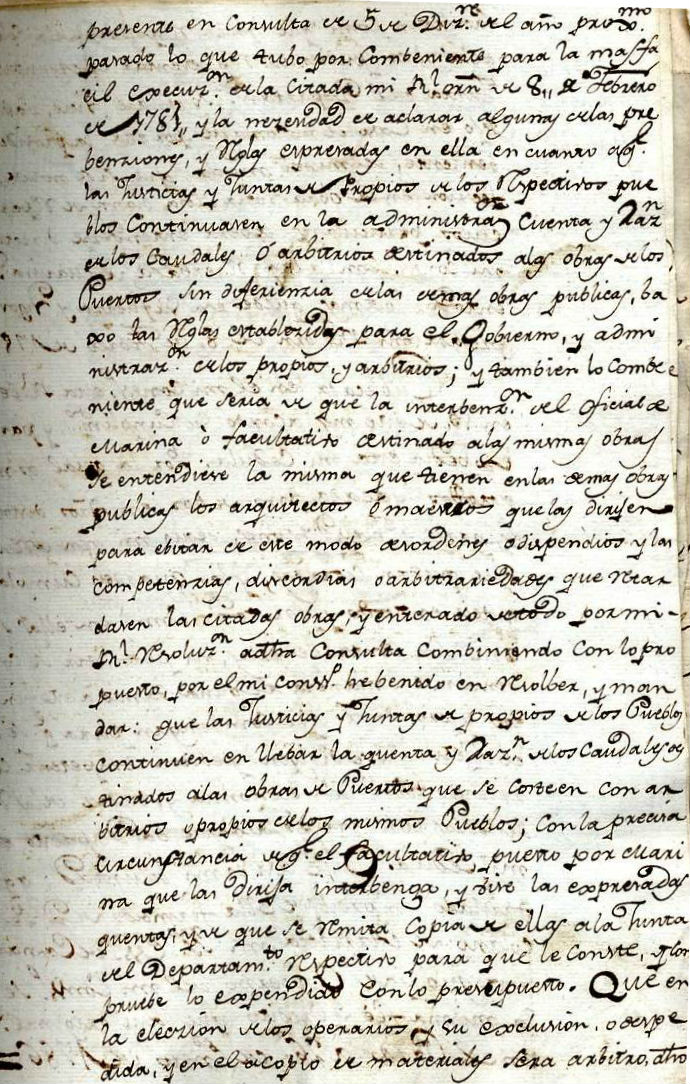 presente en Consulta de 5 de Diz.re del año pro.mo
pasado lo que tubo por Combeniente para la mas fa
cil execuz.on de la Citada mi Rl. orn de 8,, de Febrero
de 1781,, y la nezesidad de aclarar algunas de las pre
benziones, y Reglas espresadas en ella en cuanto a q.e
las Justicias y Juntas de Propios de los Respectivos pue
blos Continuasen en la administraz.on Cuenta y Raz.n
de los Caudales, o arbitrios destinados a las obras de los
Puertos sin diferienzia de las demas obras publicas, ba
xo las Reglas establezidas para el Gobierno, y admi
nistraz.on de los propios, y arbitrios; y tambien lo Combe
niente que seria de que la interbenz.on del oficial de
Marina ò facultativo destinado a las mismas obras
se entendiese la misma que tienen en las demas obras
publicas los arquitectos ò maestros que las dirijen
para ebitar de este modo desordenes o dispendios y las
competenzias, discordias o arbitrariedades que Retar
dasen las citadas obras, y enterado de todo por mi
Rl. Resoluz.on a dha Consulta Combiniendo Con lo pro
puesto, por el mi Cons.o he benido en Resolber, y man
dar: que las Justicias y Juntas de propios de los Pueblos
Continuen en llebar la quenta y Raz.n de los Caudales des
tinados a las obras de Puertos que se Costeen con ar
bitrios o propios de los mismos Pueblos; Con la precisa
circunstancia de q.e el facultativo, puesto por Mari
na que las Dirija interbenga, y vise las expresadas
quentas, y de que se Remita Copia de ellas a la Junta
del Departam.to Respectivo para que le Conste, y Com
pruebe lo expendido Con lo presupuesto. Que en
la eleczion de los operarios, y su exclusion, o despe
dida, y en el acopio de materiales sera arbitro, dho